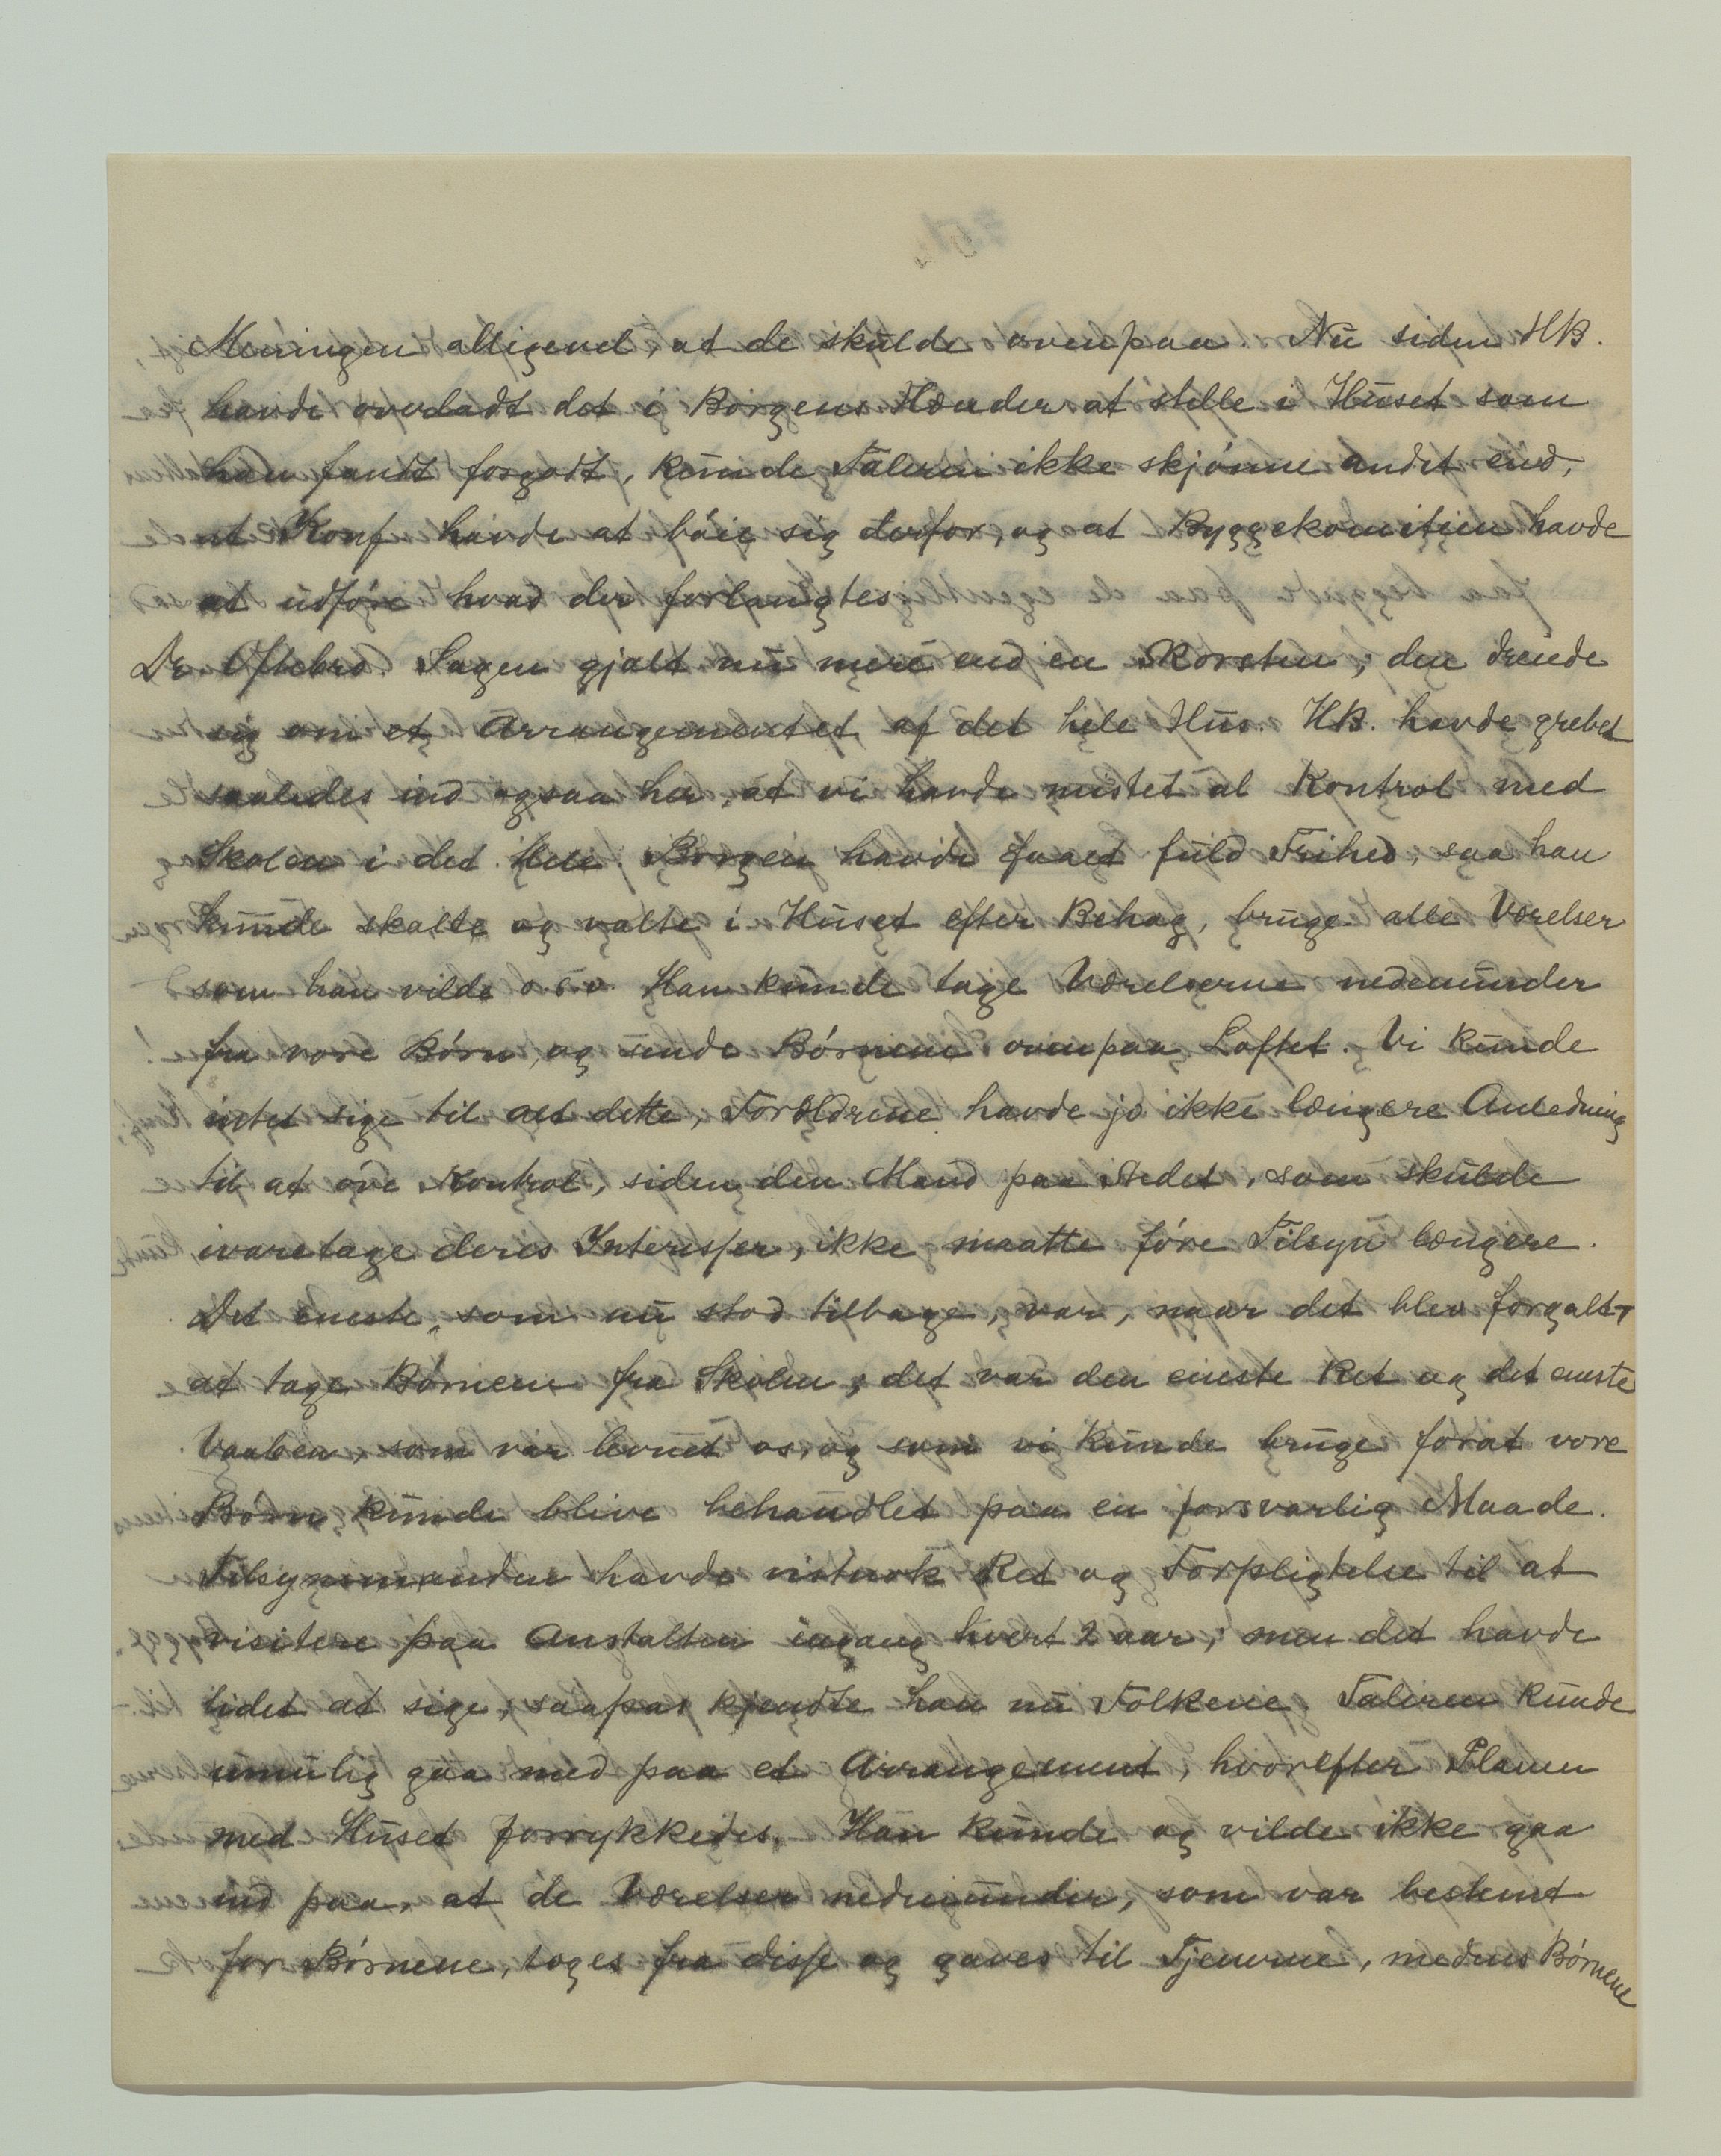 Meningen alligevel, at de skulde ovenpaa. Nu siden HB.
havde overladt det i Borgens Hænder at stelle i Huset som
han fandt forgodt, kunde Taleren ikke skjønne andet end,
at Konf havde at bøie sig derfor, og at Byggekomiteen havde
at udføre hvad der forlangtes
Dr. Oftebro. Sagen gjaldt nu mere end en Skorsten; den dreiede
sig om et Arrangementet af det hele Hus. HB. havde grebet
saaledes ind ogsaa her, at vi havde mistet al Kontrol med
Skolen i det Hele. Borgen havde faaet fuld Frihed, saa han
kunde skalte og valte i Huset efter Behag, bruge alle Værelser
som han vilde o.s.v. Han kunde tage Værelserne nedenunder
fra vore Børn, og sende Børnene ovenpaa Loftet. Vi kunde
intet sige til alt dette, Forældrene havde jo ikke længere Anledning
til at øve Kontrol, siden den Mand paa Stedet, som skulde
ivaretage deres Interesser, ikke maatte føre Tilsyn længere.
Det eneste, som nu stod tilbage, var, naar det blev forgalt,
at tage Børnene fra Skolen; det var den eneste Ret og det eneste
Vaaben, som var levnet os, og som vi kunde bruge forat vore
Børn kunde blive behandlet paa en forsvarlig Maade.
Tilsynsmanden havde vistnok Ret og Forpligtelse til at
visitere paa Anstalten engang hvert 2 aar, men det havde
lidet at sige, saapas kjendte han nu Folkene. Taleren kunde
umulig gaa med paa et Arrangement, hvorefter Planen
med Huset forrykkedes. Han kunde og vilde ikke gaa
ind paa, at de Værelser nedenunder, som var bestemt
for Børnene, toges fra disse og gaves til Tjenerne, medens Børnene